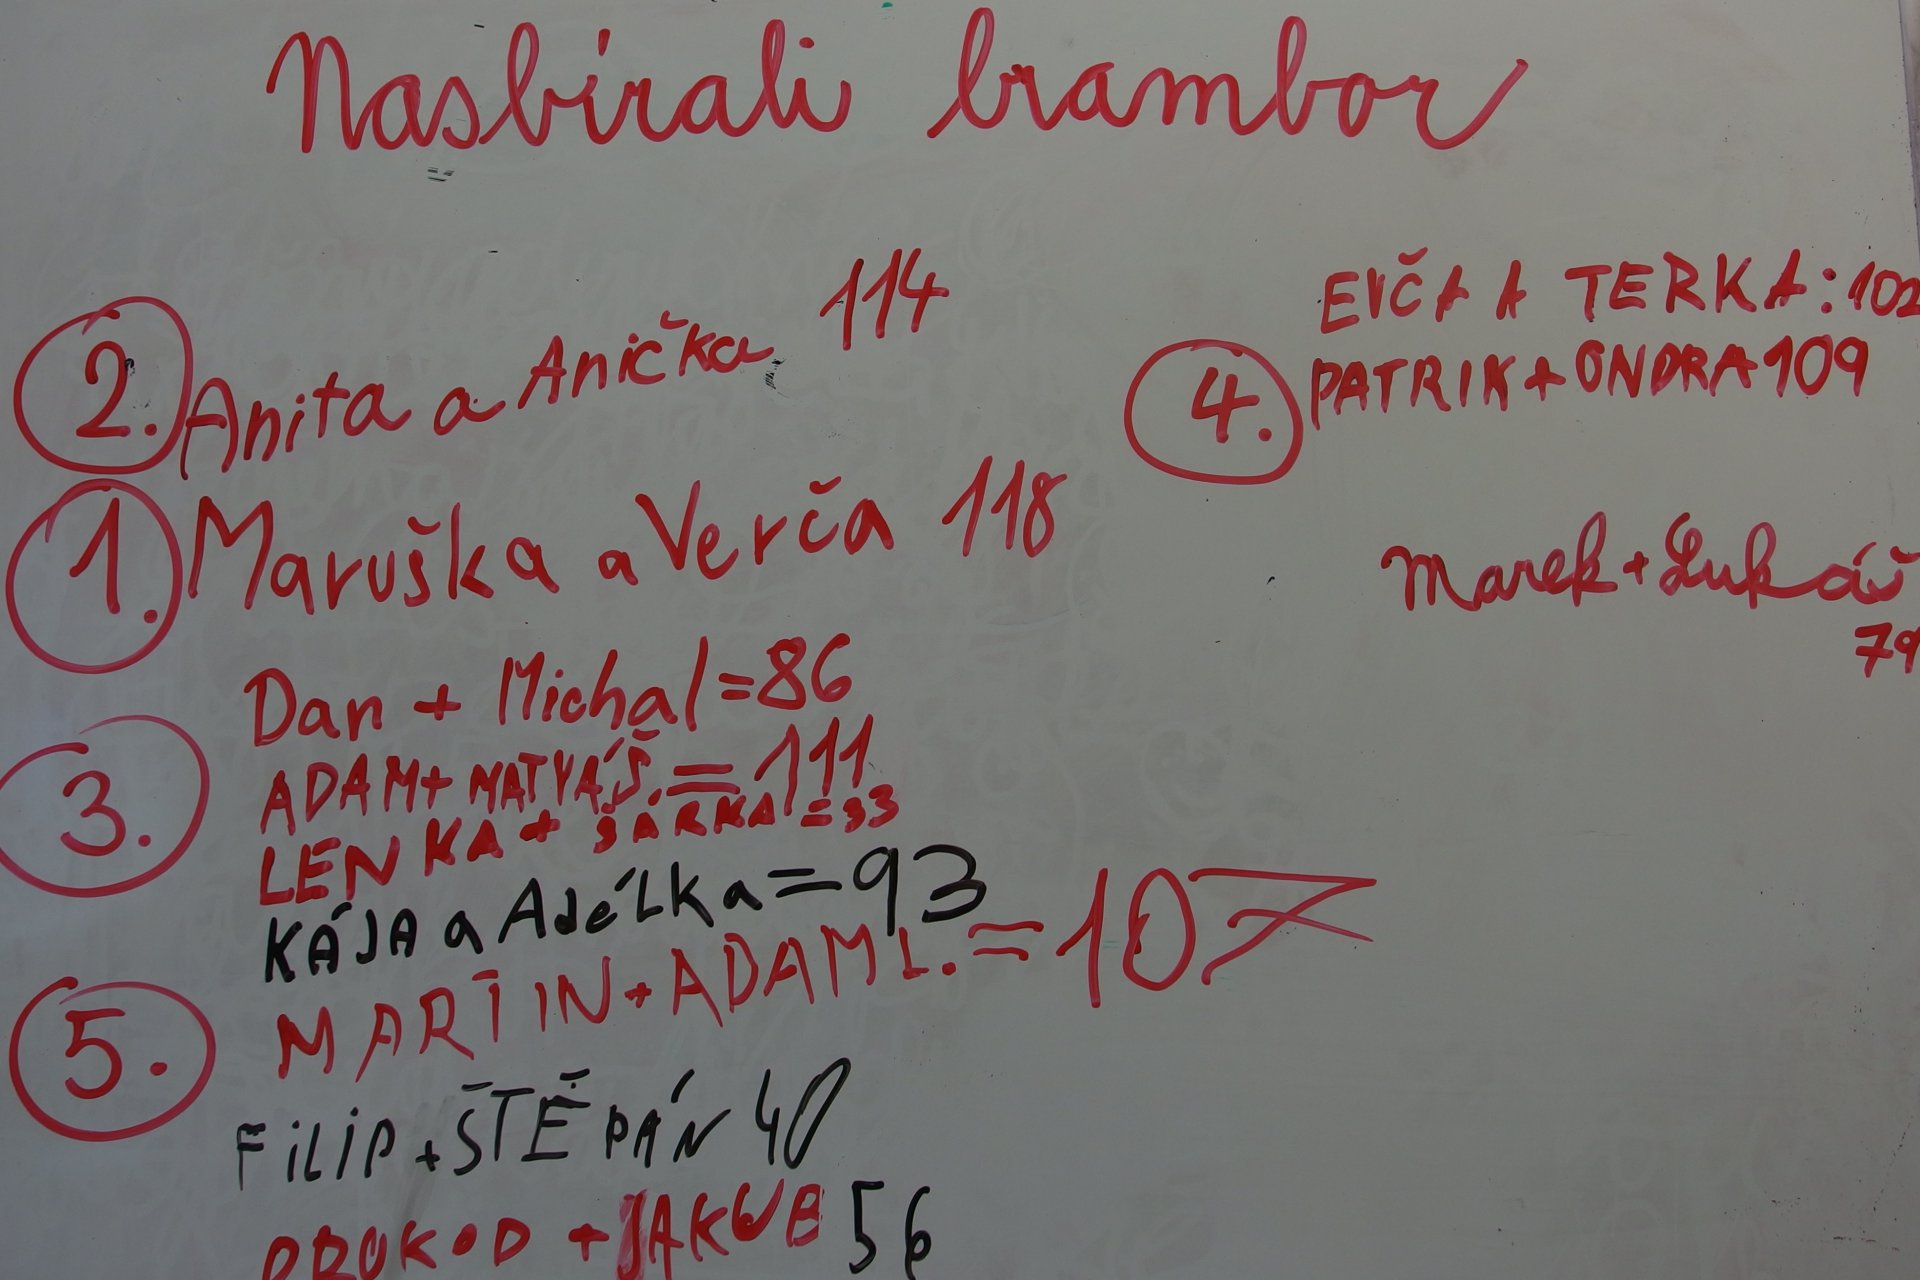 Nasbírali brambor
2. Anita a Anička 114
1. Maruška a Verča 118
Dan + Michal = 86
3. ADAM + MATYÁŠ = 111
LENKA + ŠÁRKA = 33
KÁJA a Adélka = 93
5. MARTIN + ADAM L. = 107
FILIP + ŠTĚPÁN 40
PROKOP + JAKUB 56
EVČA A TERKA: 102
4. PATRIK + ONDRA 109
Marek + Lukáš
79